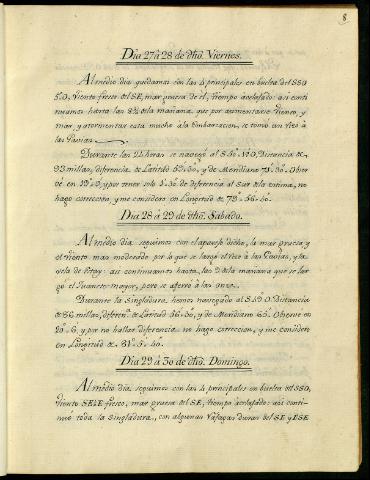 8
Dia 27 á 28 de dho. Viernes.
Al medio dia quedamos con las 4 principales en buelta del SSO
5º O, Viento fresco del SE, mar gruesa de el, tiempo acelajado: asi conti
nuamos hasta las 8½ de la mañana que por aumentarse Viento, y
mar, y atormentar esta mucho á la Embarcacion, se tomó un rizo à
las Gavias.
Durante las 24 horas se navegó al S Oº, Distancia de
93 millas, diferencia de Latitud y de Meridiano Obser
vé en y por tener solo de diferencia al Sur de la estima, no
hago correccion, y me considero en Longitud de
Dia 28 à 29 de dho. Sabado.
Al medio dia seguimos con el aparejo dicho, la mar gruesa, y
el viento mas moderado por lo que se largó el rizo à las Gavias, y la
vela de Estay: asi continuamos hasta las 9 de la mañana que se lar
gó el Juanete mayor, pero se aferró à las once.
Durante la Singladura, hemos navegado al S O. Distancia
de 86 millas, diferencia de Latitud y de Meridiano Observé en
y por no hallar diferencia no hago correccion, y me considero
en Longitud de
Dia 29 à 30 de dho. Domingo.
Al medio dia, seguimos con las 4 principales en buelta del SSO,
Viento SE¼E fresco, mar gruesa del SE, tiempo acelajado: asi conti
nuó toda la Singladura, con algunas rafagas duras del SE y ESE